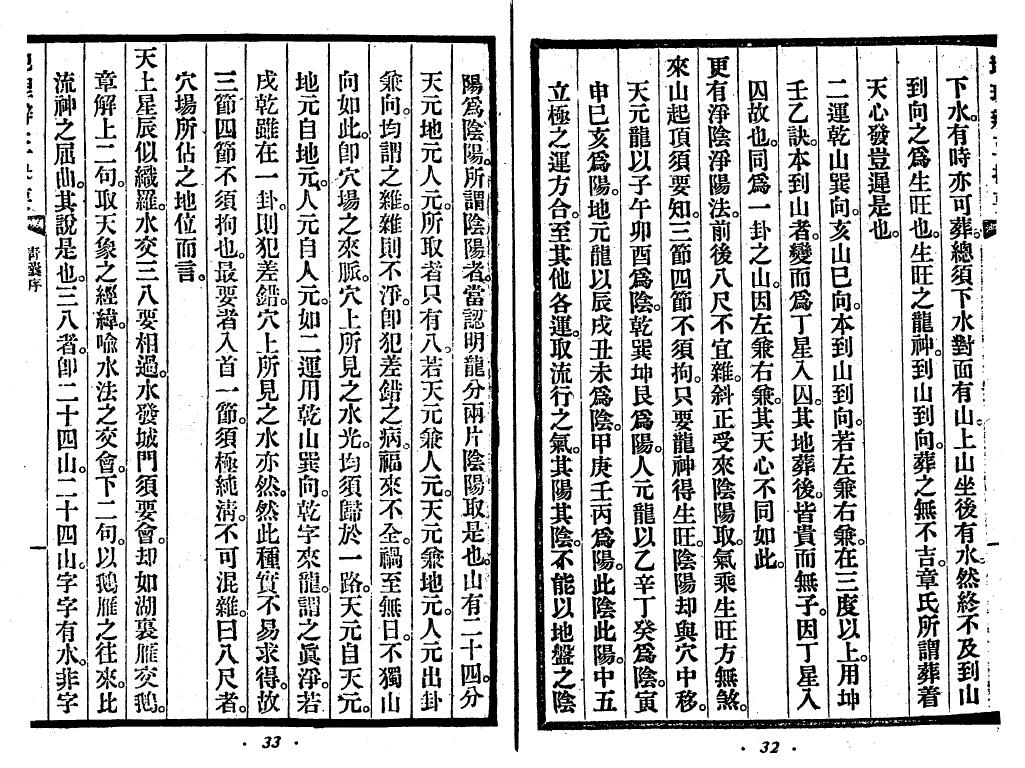 下水。有時亦可葬。總須下水對面有山上山坐後有水然終不及到山
到向之爲生旺也。生旺之龍神。到山到向。葬之無不吉。章氏所謂葬着
天心發豈遲是也。
二運乾山巽向。亥山巳向。本到山到向。若左兼右兼。在三度以上。用坤
壬乙訣。本到山者。變而爲丁星入囚。其地葬後。皆貴而無子。因丁星入
囚故也。同爲一卦之山。因左兼右兼。其天心不同如此。
更有淨陰淨陽法。前後八尺不宜雜。斜正受來陰陽取。氣乘生旺方無煞。
來山起頂須要知。三節四節不須拘。只要龍神得生旺。陰陽却與穴中移。
天元龍以子午卯酉爲陰。乾巽坤艮爲陽。人元龍以乙辛丁癸爲陰。寅
申巳亥爲陽。地元龍以辰戌丑未爲陰。甲庚壬丙爲陽。此陰此陽。中五
立極之運方合。至其他各運。取流行之氣。其陽其陰。不能以地盤之陰
· 32 ·
陽爲陰陽。所謂陰陽者。當認明龍分兩片陰陽取是也。山有二十四。分
天元地元人元。所取者只有八。若天元兼人元。天元兼地元。人元出卦
兼向。均謂之雜。雜則不淨。卽犯差錯之病。福來不全。禍至無日。不獨山
向如此。卽穴場之來脈。穴上所見之水光。均須歸於一路。天元自天元。
地元自地元。人元自人元。如二運用乾山巽向。乾字來龍。謂之眞淨。若
戌乾雖在一卦。則犯差錯。穴上所見之水亦然。然此種實不易求得。故
三節四節不須拘也。最要者入首一節。須極純淸。不可混雜。曰八尺者。
穴場所佔之地位而言。
天上星辰似織羅。水交三八要相過。水發城門須要會。却如湖裏雁交鵝。
章解上二句。取天象之經緯。喩水法之交會。下二句。以鵝雁之往來。比
流神之屈曲。其說是也。三八者。卽二十四山。二十四山。字字有水。非字
靑囊序
· 33 ·